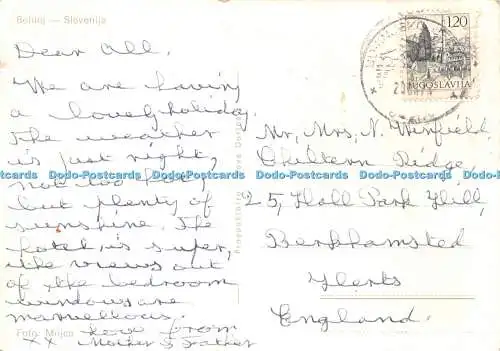 Bohinj — Slovenija
Dear All.
We are having
a lovely holiday.
The weather
is just right,
not too hot,
but plenty of
sunshine. The
hotel is super,
the views out
of the bedroom
windows are
marvellous.
Love from
xx Mother & Father
Foto: Mirjea
1.20
JUGOSLAVIJA
Mr, Mrs, N. Winfield,
Chiltern Ridge,
25, Hall Park Hill,
Berkhamsted
Herts
England.
Dodo-Postcards Dodo-Postcards Dodo-Postcards Dodo-Postcards Dodo-Postcards